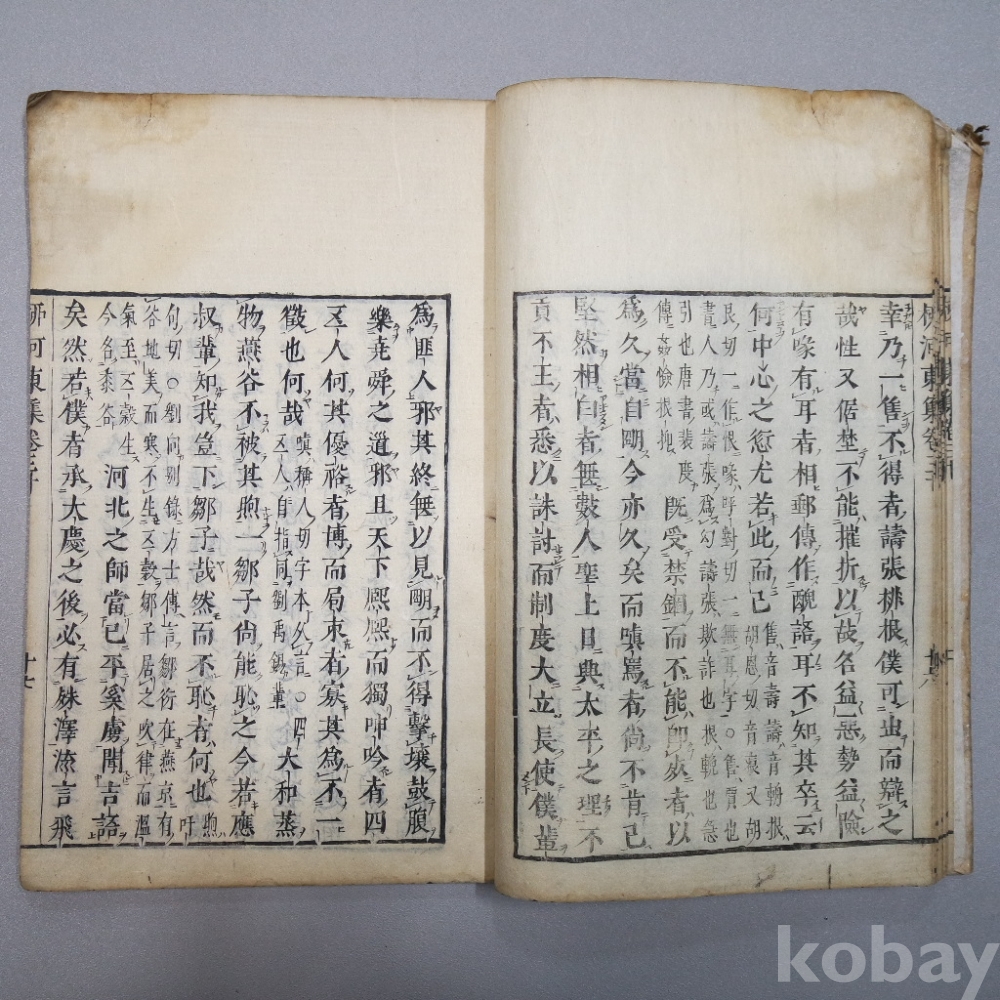 柳河東集卷三十
幸乃一售不得者譸張排根僕可出而辯之
哉性又倨埜不能摧折以故名益惡勢益險
有喙有耳者相郵傳作醜語耳不知其卒云
何中心之愆尤若此而已售音壽譸音輈根胡恩切音痕又胡
艮切一作恨喙呼對切一無耳字〇售賣也
書人乃或譸張爲幻譸張欺詐也根輓也急
引也唐書裴度
傳姦憸根抱
旣受禁錮而不能卽死者以
爲久當自明今亦久矣而嗔罵者尚不肯已
堅然相白者無數人聖上日興太平之理不
貢不王者悉以誅討而制度大立長使僕輩
爲匪人邪其終無以見明而不得擊壤鼓腹
樂堯舜之道邪且天下熙熙而獨呻吟者四
五人何其優裕者博而局束者寡其爲不一
徵也何哉
嗔稱人切字本从言〇四
五人自指同劉禹錫輩
太和蒸
物燕谷不被其煦一鄒子尚能恥之今若應
叔輩知我豈下鄒子哉然而不恥者何也煦吁
句切〇劉向別錄方士傳言鄒衍在燕京有
谷地美而寒不生五穀鄒子居之吹律而溫
氣至五穀生
今名黍谷
河北之師當已平奚虜聞吉語
矣然若僕者承大慶之後必有殊澤流言飛
柳河東集卷三十
十七
kobay